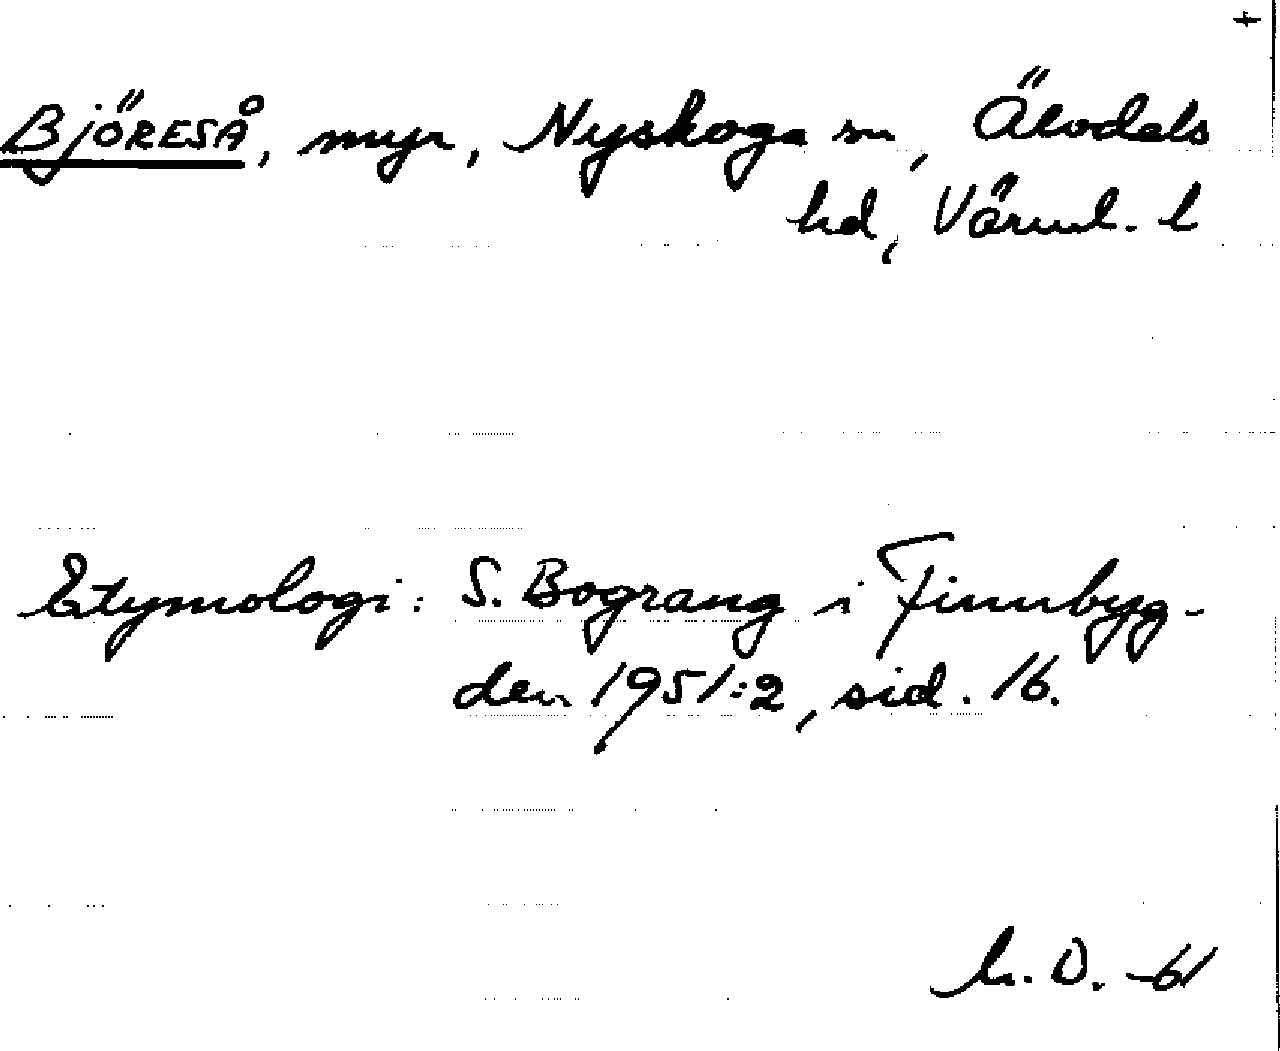 +
BJÖRESÅ, myr, Nyskoga sn, Älvdals
hd, Värml. l
Etymologi: S. Bograng i Finnbyg-
den 1951:2, sid. 16.
O. -61